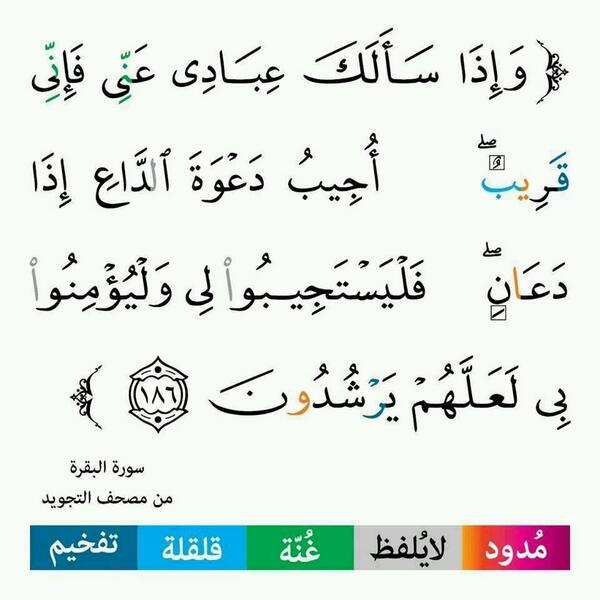 ﴿ وَإِذَا سَأَلَكَ عِبَادِى عَنِّى فَإِنِّى
قَرِيبٌ ۖ أُجِيبُ دَعْوَةَ ٱلدَّاعِ إِذَا
دَعَانِ ۖ فَلْيَسْتَجِيبُوا۟ لِى وَلْيُؤْمِنُوا۟
بِى لَعَلَّهُمْ يَرْشُدُونَ ١٨٦ ﴾
سورة البقرة
من مصحف التجويد
مُدود لايُلفظ غُنّة قلقلة تفخيم